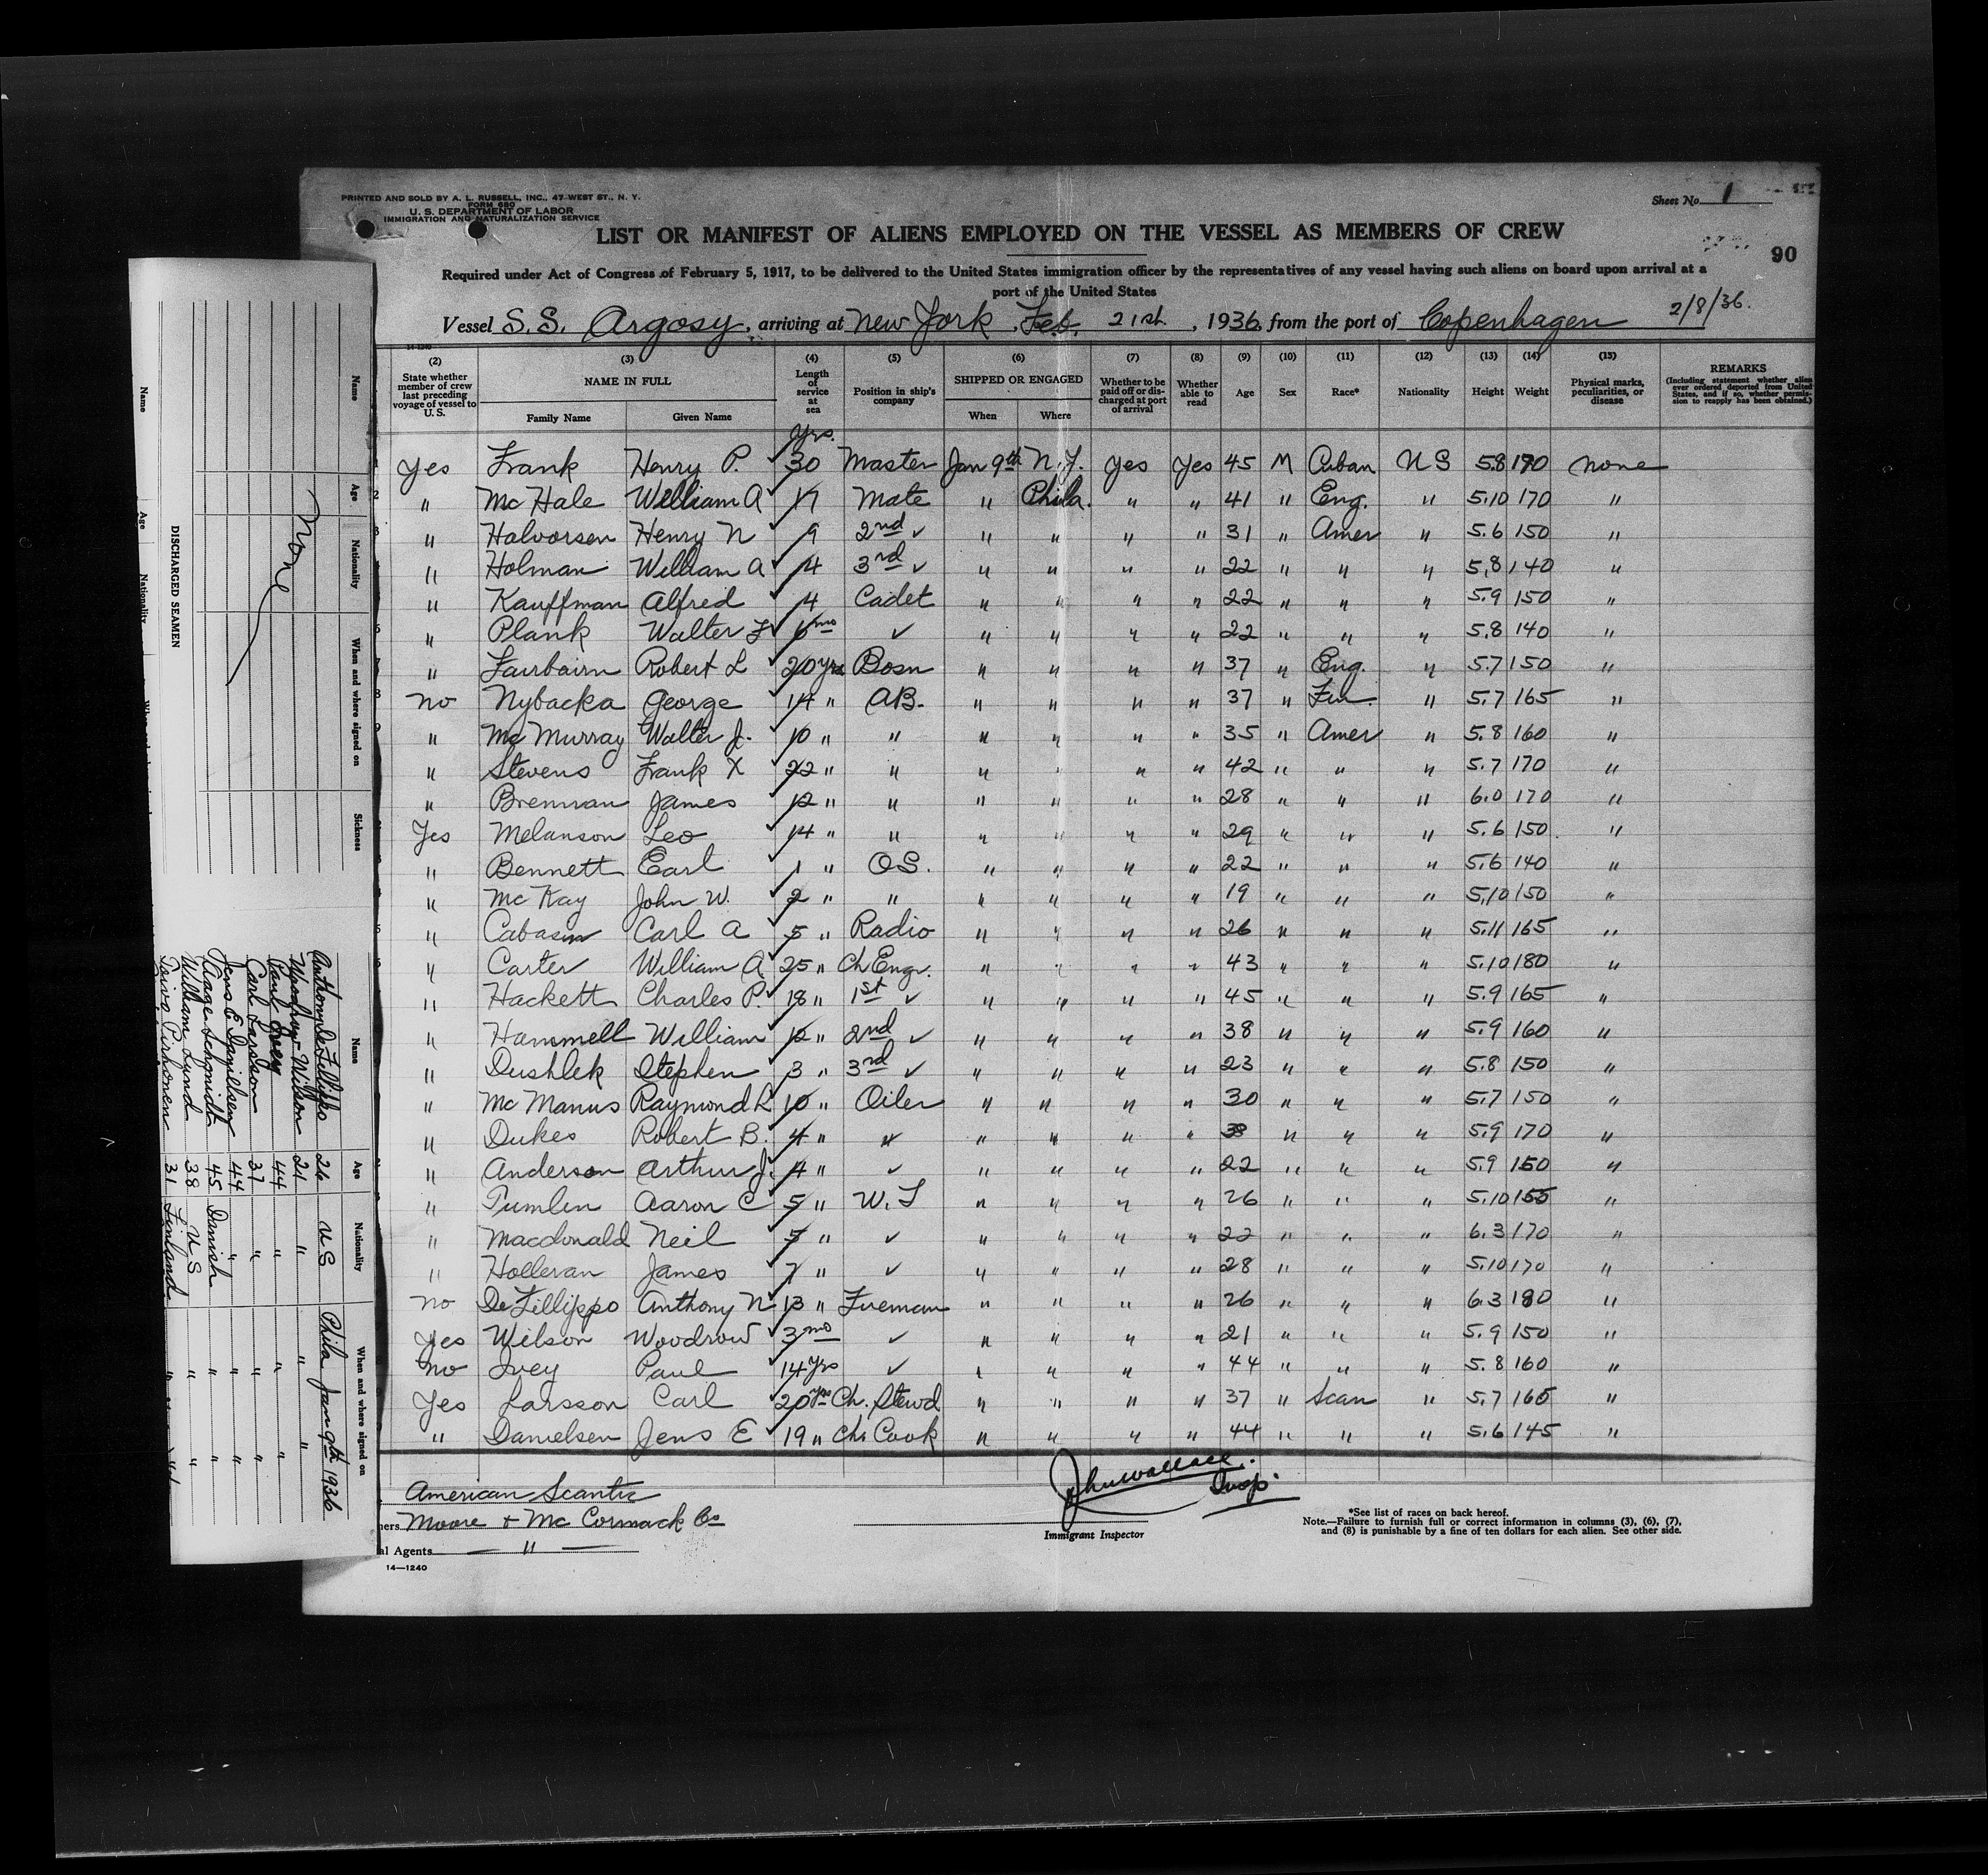 PRINTED AND SOLD BY A. L. RUSSELL, INC., 47 WEST ST., N. Y.
FORM 680
U. S. DEPARTMENT OF LABOR
IMMIGRATION AND NATURALIZATION SERVICE
Sheet No. 1
LIST OR MANIFEST OF ALIENS EMPLOYED ON THE VESSEL AS MEMBERS OF CREW
90
Required under Act of Congress of February 5, 1917, to be delivered to the United States immigration officer by the representatives of any vessel having such aliens on board upon arrival at a
port of the United States
2/8/36.
Vessel S.S. Argosy, arriving at New York, Feb. 21st, 1936, from the port of Copenhagen
(2) (3) (4) (5) (6) (7) (8) (9) (10) (11) (12) (13) (14) (15)
State whether member of crew last preceding voyage of vessel to U. S. NAME IN FULL Family Name Given Name Length of service at sea Position in ship's company SHIPPED OR ENGAGED When Where Whether to be paid off or discharged at port of arrival Whether able to read Age Sex Race* Nationality Height Weight Physical marks, peculiarities, or disease REMARKS (Including statement whether alien ever ordered deported from United States, and if so, whether permission to reapply has been obtained.)
yrs.
1 Yes Frank Henry P. ✓ 30 Master Jan 9th N.Y. Yes Yes 45 M Cuban US 5.8 190 none
2 " Mc Hale William A ✓ 17 Mate " Phila. " " 41 " Eng. " 5.10 170 "
3 " Halvorsen Henry N ✓ 9 2nd ✓ " " " " 31 " Amer " 5.6 150 "
" Holman William A ✓ 4 3rd ✓ " " " " 22 " " " 5.8 140 "
" Kauffman Alfred ✓ 4 Cadet " " " " 22 " " " 5.9 150 "
" Plank Walter F ✓ 6mo ✓ " " " " 22 " " " 5.8 140 "
7 " Fairbairn Robert L ✓ 20 yrs Bosn " " " " 37 " Eng. " 5.7 150 "
8 no Nybacka George ✓ 14 " AB. " " " " 37 " Fin. " 5.7 165 "
9 " Mc Murray Walter J. ✓ 10 " " " " " " 35 " Amer " 5.8 160 "
" Stevens Frank X ✓ 22 " " " " " " 42 " " " 5.7 170 "
" Brennan James ✓ 12 " " " " " " 28 " " " 6.0 170 "
Yes Melanson Leo ✓ 14 " " " " " " 29 " " " 5.6 150 "
" Bennett Earl ✓ 1 " OS. " " " " 22 " " " 5.6 140 "
" Mc Kay John W. ✓ 2 " " " " " " 19 " " " 5.10 150 "
" Carl A ✓ 5 " Radio " " " " 26 " " " 5.11 165 "
" Carter William A ✓ 25 " Ch Engr. " " " " 43 " " " 5.10 180 "
" Hackett Charles P. ✓ 18 " 1st ✓ " " " " 45 " " " 5.9 165 "
" Hammell William ✓ 12 " 2nd ✓ " " " " 38 " " " 5.9 160 "
" Dushlek Stephen ✓ 3 " 3rd ✓ " " " " 23 " " " 5.8 150 "
" Mc Manus Raymond L ✓ 10 " Oiler " " " " 30 " " " 5.7 150 "
" Dukes Robert B. ✓ 4 " " " " " " 38 " " " 5.9 170 "
" Anderson Arthur J. ✓ 4 " ✓ " " " " 22 " " " 5.9 150 "
" Tumlin Aaron C ✓ 5 " W.T " " " " 26 " " " 5.10 155 "
" Macdonald Neil ✓ 5 " ✓ " " " " 22 " " " 6.3 170 "
" Holleran James ✓ 7 " ✓ " " " " 28 " " " 5.10 170 "
no De Fillippo Anthony N ✓ 13 " Fireman " " " " 26 " " " 6.3 180 "
Yes Wilson Woodrow ✓ 3mo ✓ " " " " 21 " " " 5.9 150 "
no Ivey Paul ✓ 14 yrs ✓ " " " " 44 " " " 5.8 160 "
Yes Larsson Carl ✓ 20 yrs Ch. Stewd " " " " 37 " Scan " 5.7 165 "
" Danielsen Jens E ✓ 19 " Ch. Cook " " " " 44 " " " 5.6 145 "
American Scantic
Moore + Mc Cormack Co
al Agents "
14—1240
John Wallace. Insp.
Immigrant Inspector
*See list of races on back hereof.
Note.—Failure to furnish full or correct information in columns (3), (6), (7),
and (8) is punishable by a fine of ten dollars for each alien. See other side.
Name Age Nationality When and where signed on Sickness
None
DISCHARGED SEAMEN
Name Age Nationality
Name Age Nationality When and where signed on
Anthony De Fillippo 26 US Phila Jan 9th 1936
Woodrow Wilson 21 " " "
Paul Ivey 44 " " "
Carl Larsson 37 " " "
Jens E Danielsen 44 " " "
Aage Schmidt 45 Danish " "
William Lund 38 US " "
Toivo Pirhonen 31 Finland